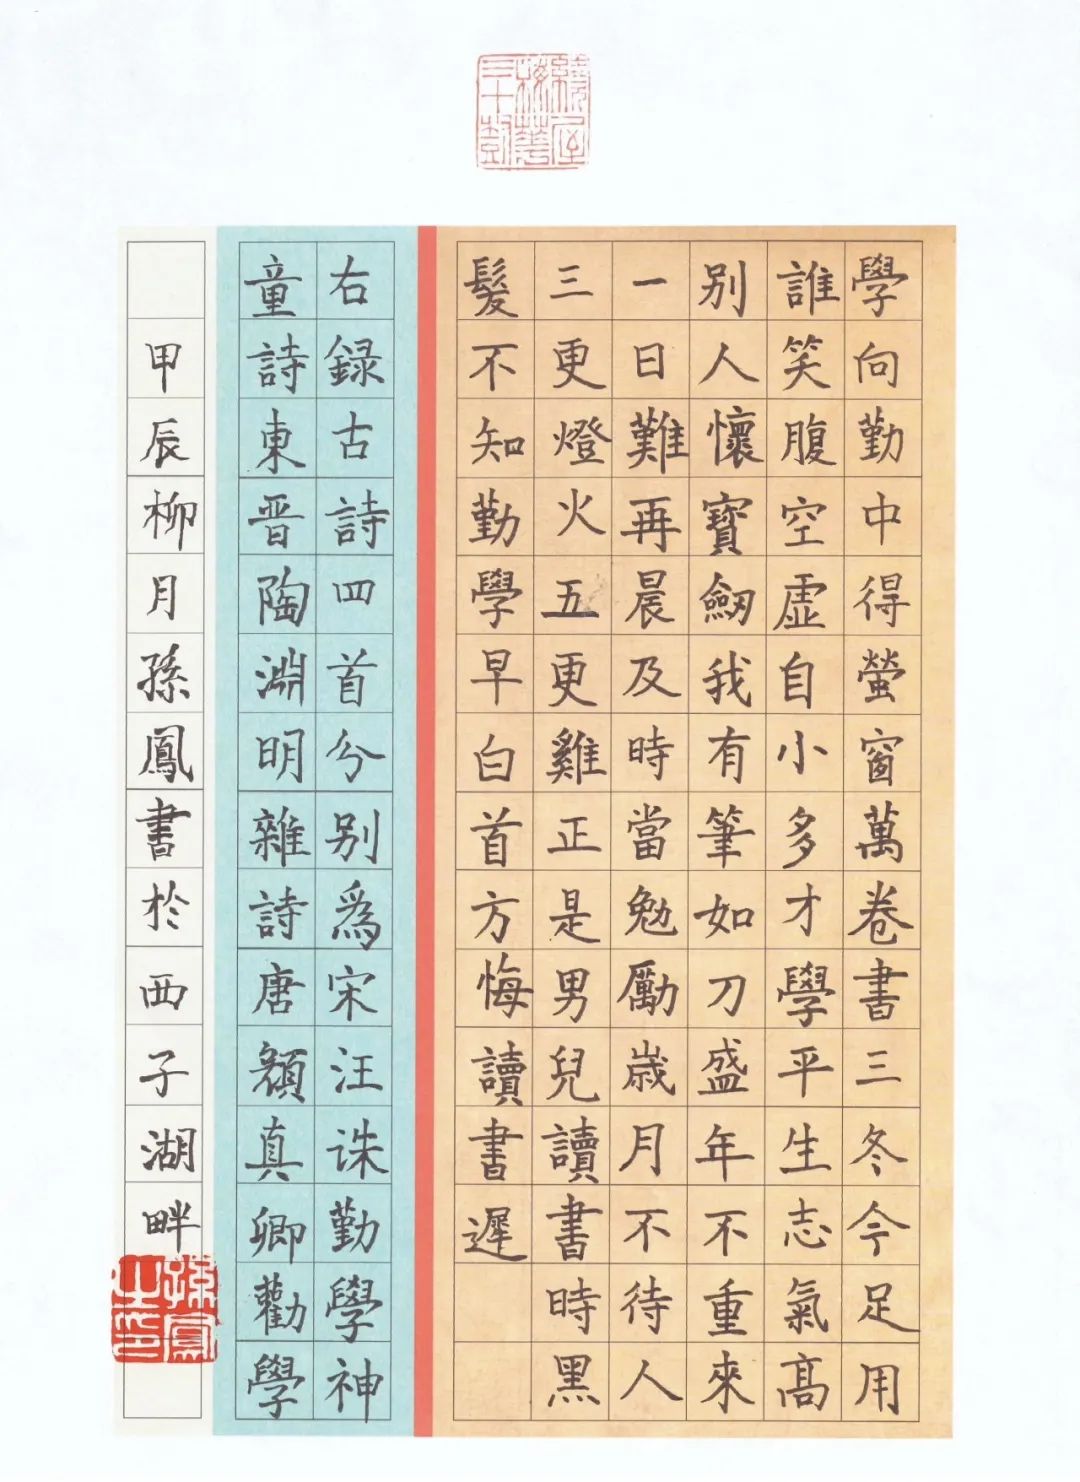 繞屋梅華三十樹
學向勤中得螢窗萬卷書三冬今足用
誰笑腹空虛自小多才學平生志氣高
别人懷寶劒我有筆如刀盛年不重來
一日難再晨及時當勉勵歲月不待人
三更燈火五更雞正是男兒讀書時黑
髮不知勤學早白首方悔讀書遲
右録古詩四首分别爲宋汪洙勤學神
童詩東晋陶淵明雜詩唐顏真卿勸學
甲辰柳月孫鳳書於西子湖畔
孫鳳之印